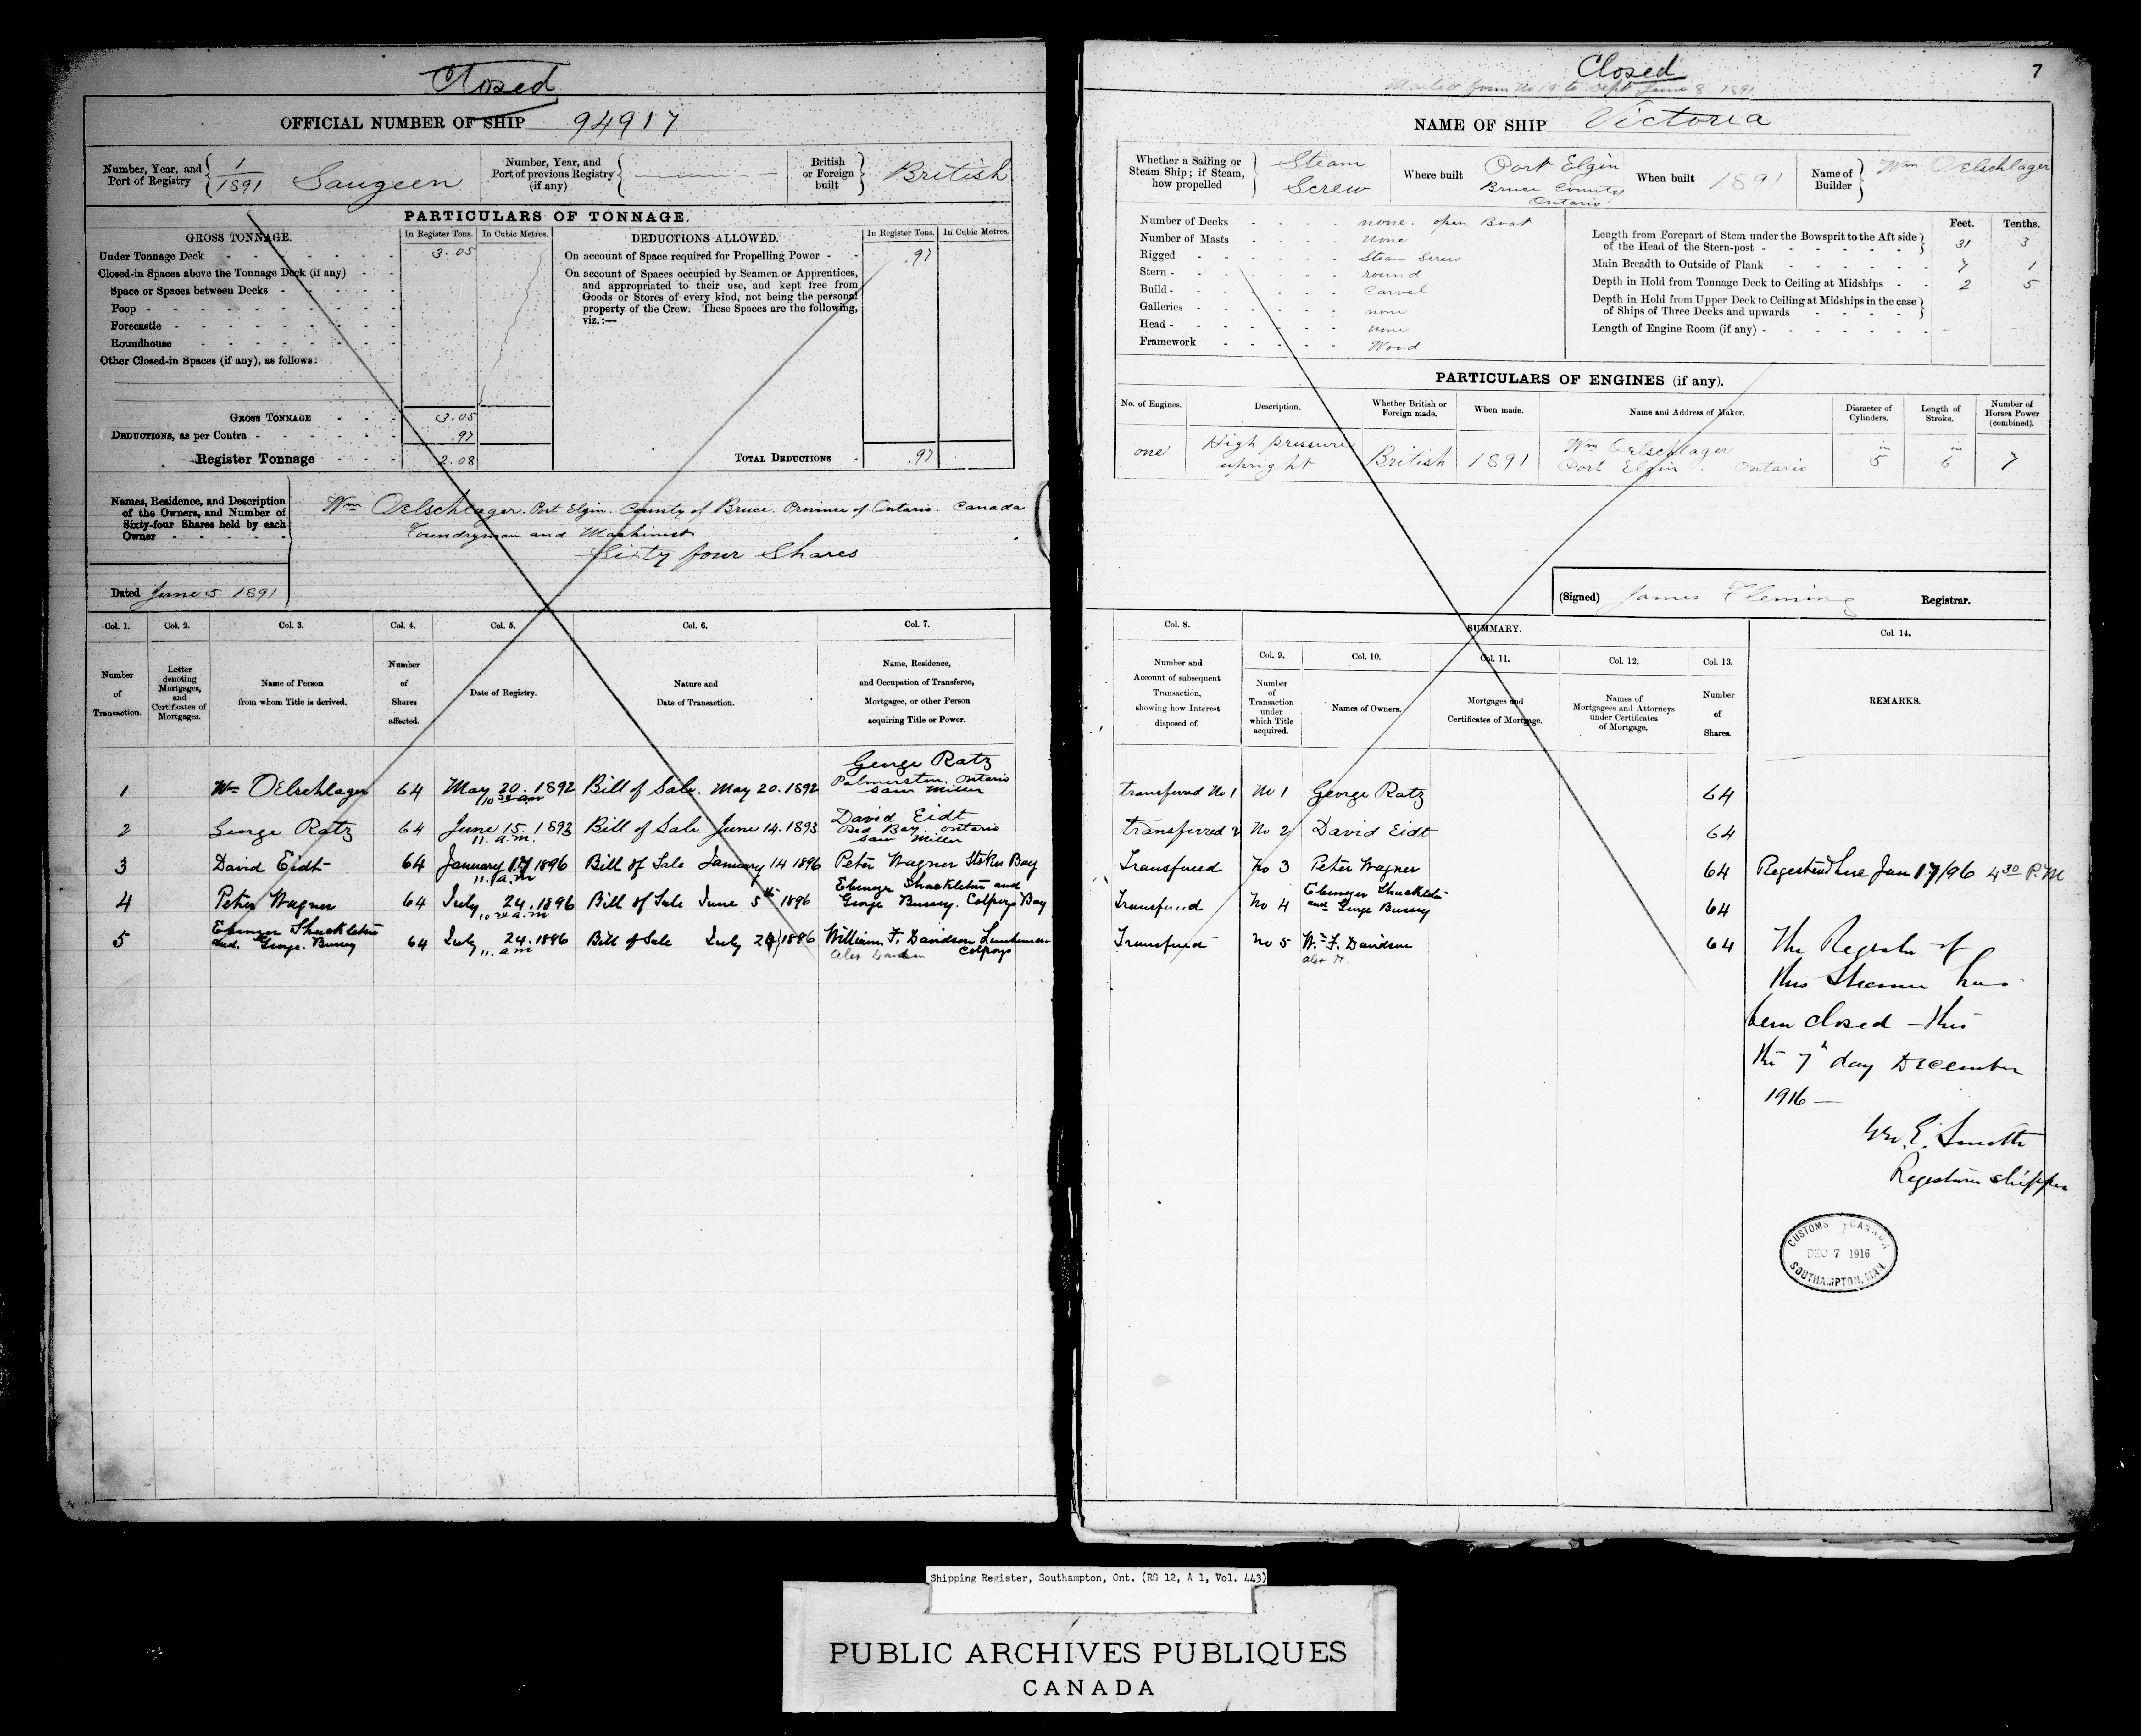 Closed
OFFICIAL NUMBER OF SHIP 94917
Number, Year, and Port of Registry { 1/1891 Saugeen
Number, Year, and Port of previous Registry (if any) {
British or Foreign built British
PARTICULARS OF TONNAGE.
GROSS TONNAGE. In Register Tons. In Cubic Metres.
Under Tonnage Deck 3.05
Closed-in Spaces above the Tonnage Deck (if any)
Space or Spaces between Decks
Poop
Forecastle
Roundhouse
Other Closed-in Spaces (if any), as follows:
GROSS TONNAGE 3.05
DEDUCTIONS, as per Contra .97
Register Tonnage 2.08
DEDUCTIONS ALLOWED. In Register Tons. In Cubic Metres.
On account of Space required for Propelling Power .97
On account of Spaces occupied by Seamen or Apprentices,
and appropriated to their use, and kept free from
Goods or Stores of every kind, not being the personal
property of the Crew. These Spaces are the following,
viz.:—
TOTAL DEDUCTIONS .97
Names, Residence, and Description
of the Owners, and Number of
Sixty-four Shares held by each
Owner
Wm Oelschlager. Port Elgin. County of Bruce. Province of Ontario. Canada
Foundryman and Machinist
Sixty four Shares
Dated June 5. 1891
Col. 1. Col. 2. Col. 3. Col. 4. Col. 5. Col. 6. Col. 7.
Number of Transaction.
Letter denoting Mortgages, and Certificates of Mortgages.
Name of Person from whom Title is derived.
Number of Shares affected.
Date of Registry.
Nature and Date of Transaction.
Name, Residence, and Occupation of Transferee, Mortgagee, or other Person acquiring Title or Power.
1 Wm OElschlager 64 May 20. 1892 10 30 am Bill of Sale. May 20. 1892 George Ratz Palmerston. Ontario Saw Miller
2 George Ratz 64 June 15. 1893 11. a.m. Bill of Sale June 14. 1893 David Eidt Red Bay. Ontario Saw Miller
3 David Eidt 64 January 17 1896 11. a.m Bill of Sale January 14 1896 Peter Wagner Stokes Bay
4 Peter Wagner 64 July 24. 1896 10 a.m Bill of Sale June 5th 1896 Ebenezer Shackleton and George Bussey. Colpoys Bay
5 Ebenezer Shackleton and. George. Bussey 64 July 24. 1896 11. a m Bill of Sale July 24 1896 William F. Davidson Colpoys
Closed
7
June 8 1891
NAME OF SHIP Victoria
Whether a Sailing or Steam Ship; if Steam, how propelled } Steam Screw
Where built Port Elgin Bruce County Ontario
When built 1891
Name of Builder } Wm Oelschlager
Number of Decks none. open Boat
Number of Masts none
Rigged Steam Screw
Stern round
Build Carvel
Galleries none
Head none
Framework Wood
Feet. Tenths.
Length from Forepart of Stem under the Bowsprit to the Aft side
of the Head of the Stern-post 31 3
Main Breadth to Outside of Plank 7 1
Depth in Hold from Tonnage Deck to Ceiling at Midships 2 5
Depth in Hold from Upper Deck to Ceiling at Midships in the case
of Ships of Three Decks and upwards
Length of Engine Room (if any)
PARTICULARS OF ENGINES (if any).
No. of Engines. Description. Whether British or Foreign made. When made. Name and Address of Maker. Diameter of Cylinders. Length of Stroke. Number of Horses Power (combined).
one High pressure upright British 1891 Wm Oelschlager Port Elgin. Ontario in 5 in 6 7
(Signed) James Fleming Registrar.
Col. 8. SUMMARY. Col 14.
Col. 9. Col. 10. Col. 11. Col. 12. Col. 13.
Number and Account of subsequent Transaction, showing how Interest disposed of.
Number of Transaction under which Title acquired.
Names of Owners.
Mortgages and Certificates of Mortgage.
Names of Mortgagees and Attorneys under Certificates of Mortgage.
Number of Shares.
REMARKS.
transferred No 1 No 1 George Ratz 64
transferred 2 No 2 David Eidt 64
Transferred No 3 Peter Wagner 64 Registered here Jan 17/96 4 30 P.M
Transferred No 4 Ebenezer Shackleton and George Bussey 64
Transferred No 5 Wm F. Davidson 64
The Register of
this Steamer has
been closed – this
the 7th day December
1916 —
Geo. E. Smith
Registrar Shipping
CUSTOMS CANADA
DEC 7 1916
SOUTHAMPTON,
Shipping Register, Southampton, Ont. (RG 12, A 1, Vol. 443)
PUBLIC ARCHIVES PUBLIQUES
CANADA